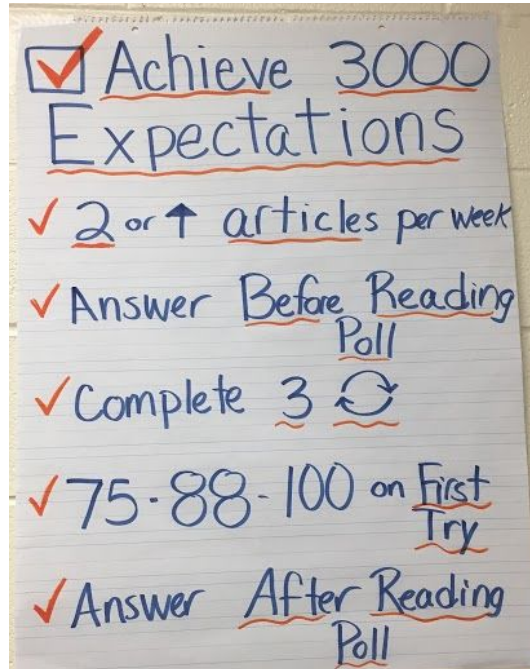 Achieve 3000
Expectations
✓ 2 or ↑ articles per week
✓ Answer Before Reading
Poll
✓ Complete 3 🔄
✓ 75-88-100 on First
Try
✓ Answer After Reading
Poll